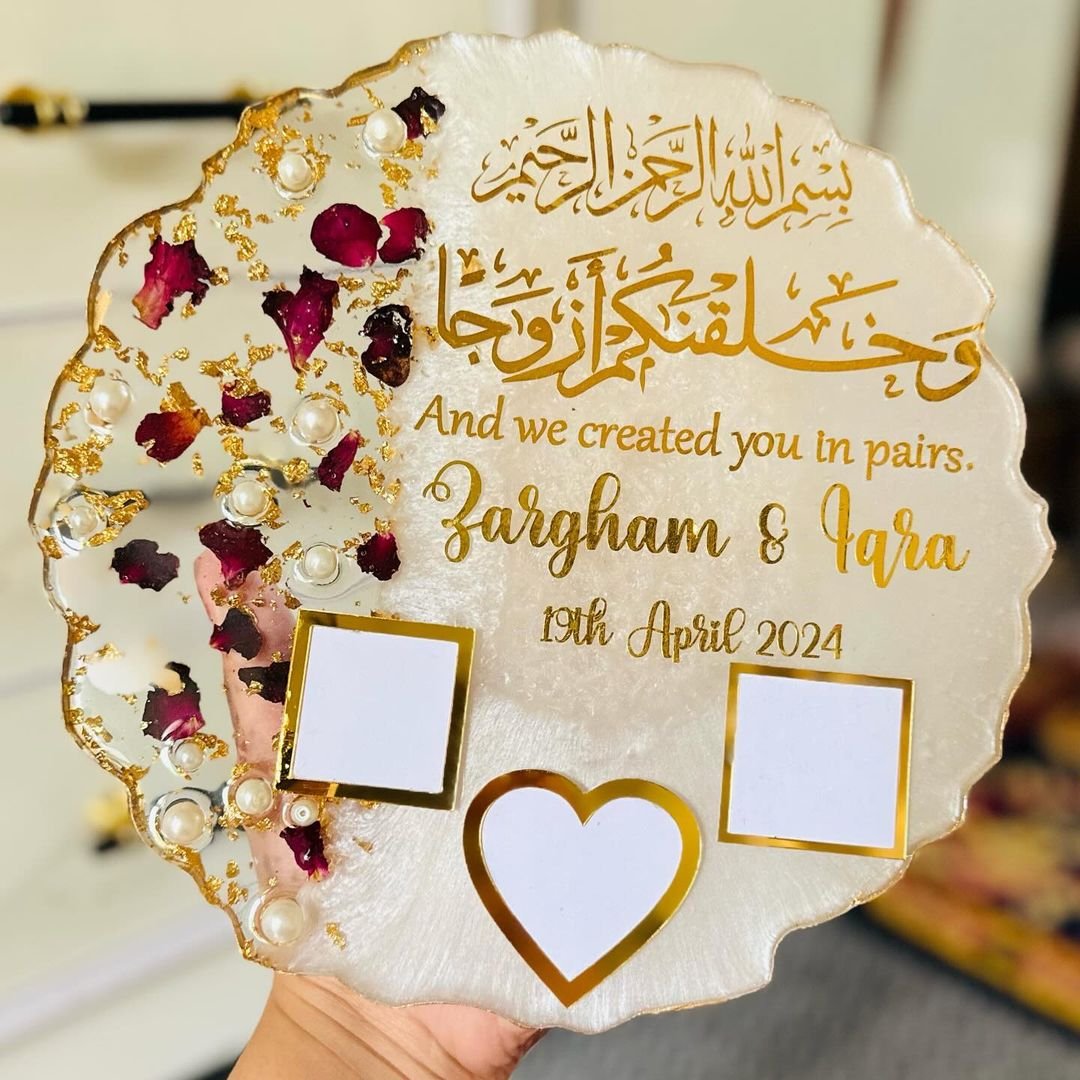 بِسْمِ اللَّهِ الرَّحْمَنِ الرَّحِيمِ
وَخَلَقْنَكُمْ أَزْوَجًا
And we created you in pairs.
Zargham & Iqra
19th April 2024